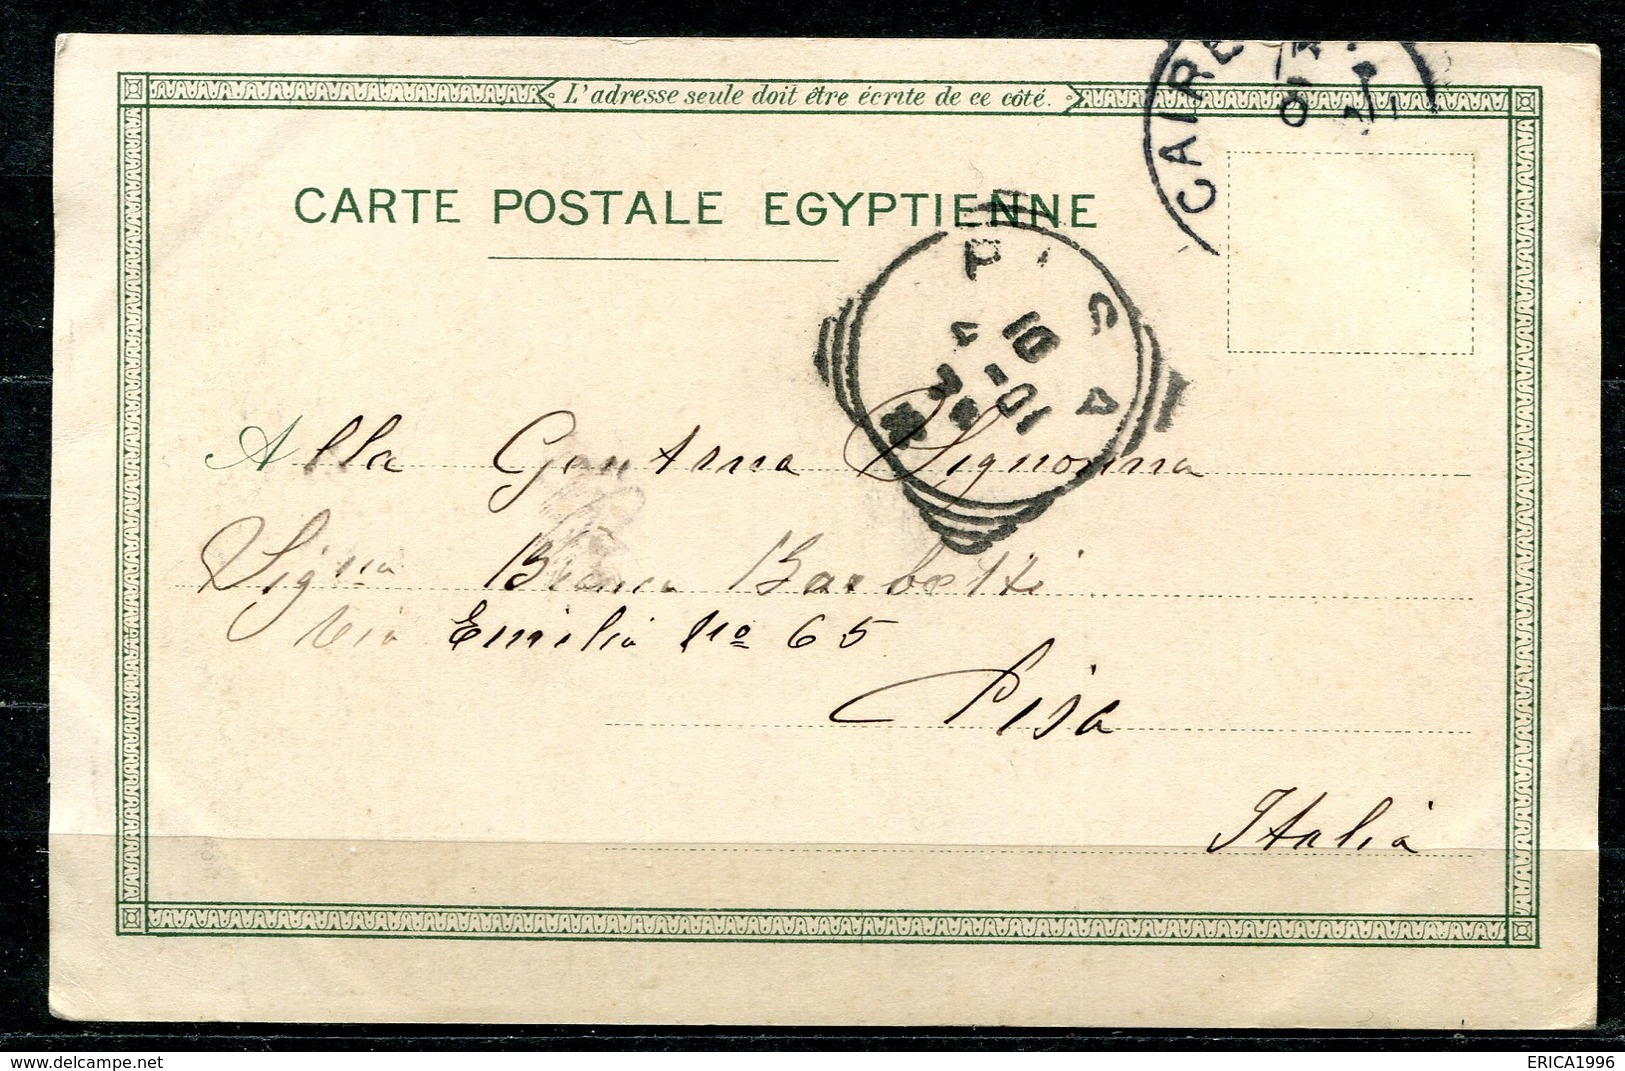 L'adresse seule doit être écrite de ce côté.
CARTE POSTALE EGYPTIENNE
CAIRE
PISA
10-01
Alla Gentma Signorina
Signa Bianca Barbetti
Via Emilia No 65
Pisa
Italia
delcampe.net
ERICA1996